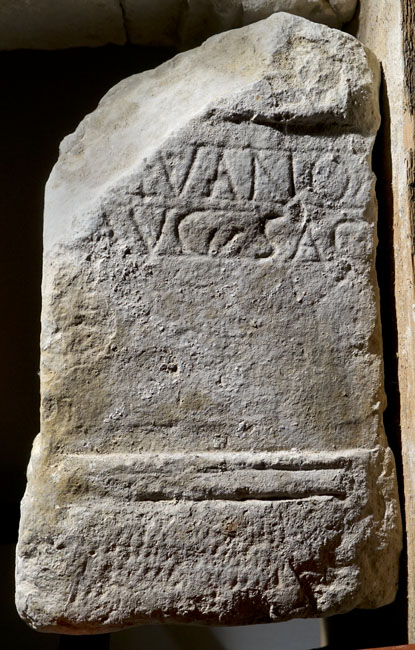 LVANO
AVG SAC